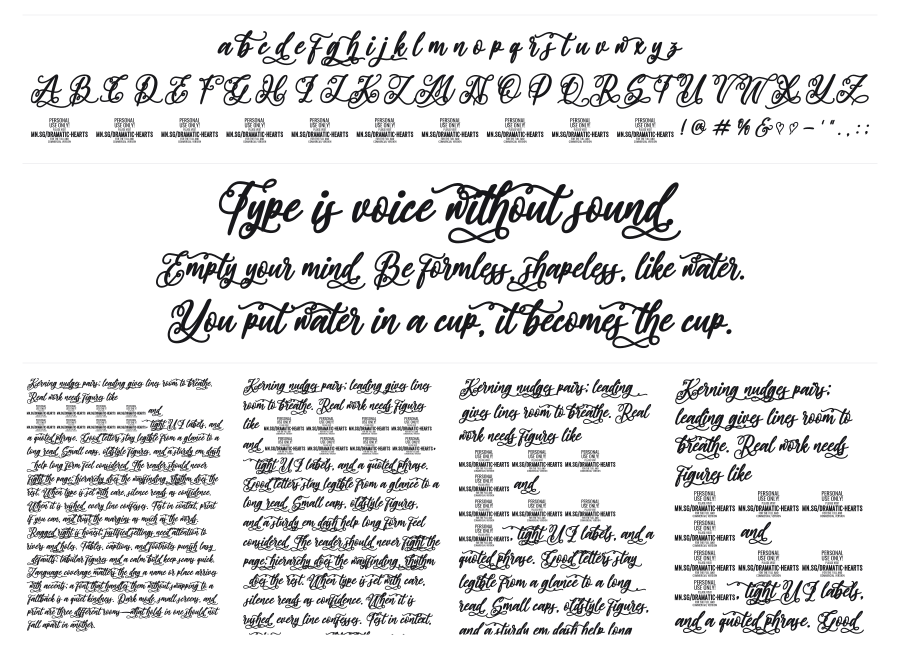 a b c d e f g h i j k l m n o p q r s t u v w x y z
A B C D E F G H I J K L M N O P Q R S T U V W X Y Z
PERSONAL PERSONAL PERSONAL PERSONAL PERSONAL PERSONAL PERSONAL PERSONAL PERSONAL PERSONAL
USE ONLY! USE ONLY! USE ONLY! USE ONLY! USE ONLY! USE ONLY! USE ONLY! USE ONLY! USE ONLY! USE ONLY!
MN.SG/DRAMATIC-HEARTS MN.SG/DRAMATIC-HEARTS MN.SG/DRAMATIC-HEARTS MN.SG/DRAMATIC-HEARTS MN.SG/DRAMATIC-HEARTS MN.SG/DRAMATIC-HEARTS MN.SG/DRAMATIC-HEARTS MN.SG/DRAMATIC-HEARTS MN.SG/DRAMATIC-HEARTS MN.SG/DRAMATIC-HEARTS ! @ # % & ♡ ♡ – ' " . , : ;
Type is voice without sound.
Empty your mind. Be formless, shapeless, like water.
You put water in a cup, it becomes the cup.
Kerning nudges pairs; leading gives lines room to breathe.
Real work needs figures like
MN.SG/DRAMATIC-HEARTS MN.SG/DRAMATIC-HEARTS MN.SG/DRAMATIC-HEARTS MN.SG/DRAMATIC-HEARTS and
MN.SG/DRAMATIC-HEARTS MN.SG/DRAMATIC-HEARTS MN.SG/DRAMATIC-HEARTS MN.SG/DRAMATIC-HEARTS, tight UI labels, and
a quoted phrase. Good letters stay legible from a glance to a
long read. Small caps, oldstyle figures, and a sturdy em dash
help long form feel considered. The reader should never
fight the page; hierarchy does the wayfinding, rhythm does the
rest. When type is set with care, silence reads as confidence.
When it is rushed, every line confesses. Test in context, print
if you can, and trust the margins as much as the words.
Ragged right is honest; justified settings need attention to
rivers and holes. Tables, captions, and footnotes punish lazy
defaults; tabular figures and a calm bold keep scans quick.
Language coverage matters the day a name or place arrives
with accents; a font that handles them without swapping to a
fallback is a quiet kindness. Dark mode, small screens, and
print are three different rooms—what holds in one should not
fall apart in another.
Kerning nudges pairs; leading gives lines
room to breathe. Real work needs figures
like MN.SG/DRAMATIC-HEARTS MN.SG/DRAMATIC-HEARTS MN.SG/DRAMATIC-HEARTS MN.SG/DRAMATIC-HEARTS
and MN.SG/DRAMATIC-HEARTS MN.SG/DRAMATIC-HEARTS MN.SG/DRAMATIC-HEARTS MN.SG/DRAMATIC-HEARTS,
tight UI labels, and a quoted phrase.
Good letters stay legible from a glance to a
long read. Small caps, oldstyle figures,
and a sturdy em dash help long form feel
considered. The reader should never fight the
page; hierarchy does the wayfinding, rhythm
does the rest. When type is set with care,
silence reads as confidence. When it is
rushed, every line confesses. Test in context,
Kerning nudges pairs; leading
gives lines room to breathe. Real
work needs figures like
PERSONAL PERSONAL PERSONAL
USE ONLY! USE ONLY! USE ONLY!
MN.SG/DRAMATIC-HEARTS MN.SG/DRAMATIC-HEARTS MN.SG/DRAMATIC-HEARTS
PERSONAL
USE ONLY!
MN.SG/DRAMATIC-HEARTS and
PERSONAL PERSONAL PERSONAL
USE ONLY! USE ONLY! USE ONLY!
MN.SG/DRAMATIC-HEARTS MN.SG/DRAMATIC-HEARTS MN.SG/DRAMATIC-HEARTS
PERSONAL
USE ONLY!
MN.SG/DRAMATIC-HEARTS, tight UI labels, and a
quoted phrase. Good letters stay
legible from a glance to a long
read. Small caps, oldstyle figures,
and a sturdy em dash help long
Kerning nudges pairs;
leading gives lines room to
breathe. Real work needs
figures like
PERSONAL PERSONAL PERSONAL
USE ONLY! USE ONLY! USE ONLY!
MN.SG/DRAMATIC-HEARTS MN.SG/DRAMATIC-HEARTS MN.SG/DRAMATIC-HEARTS
PERSONAL
USE ONLY!
MN.SG/DRAMATIC-HEARTS and
PERSONAL PERSONAL PERSONAL
USE ONLY! USE ONLY! USE ONLY!
MN.SG/DRAMATIC-HEARTS MN.SG/DRAMATIC-HEARTS MN.SG/DRAMATIC-HEARTS
PERSONAL
USE ONLY!
MN.SG/DRAMATIC-HEARTS, tight UI labels,
and a quoted phrase. Good